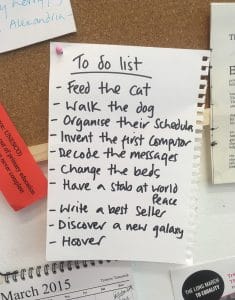 Alexandria-
To do list
- Feed the cat
- Walk the dog
- Organise their Schedules
- Invent the first Computer
- Decode the messages
- Change the beds
- Have a stab at world
Peace
- Write a best Seller
- Discover a new galaxy
- Hoover
UNESCO)
March 2015
THE LONG MARCH
TO EQUALITY